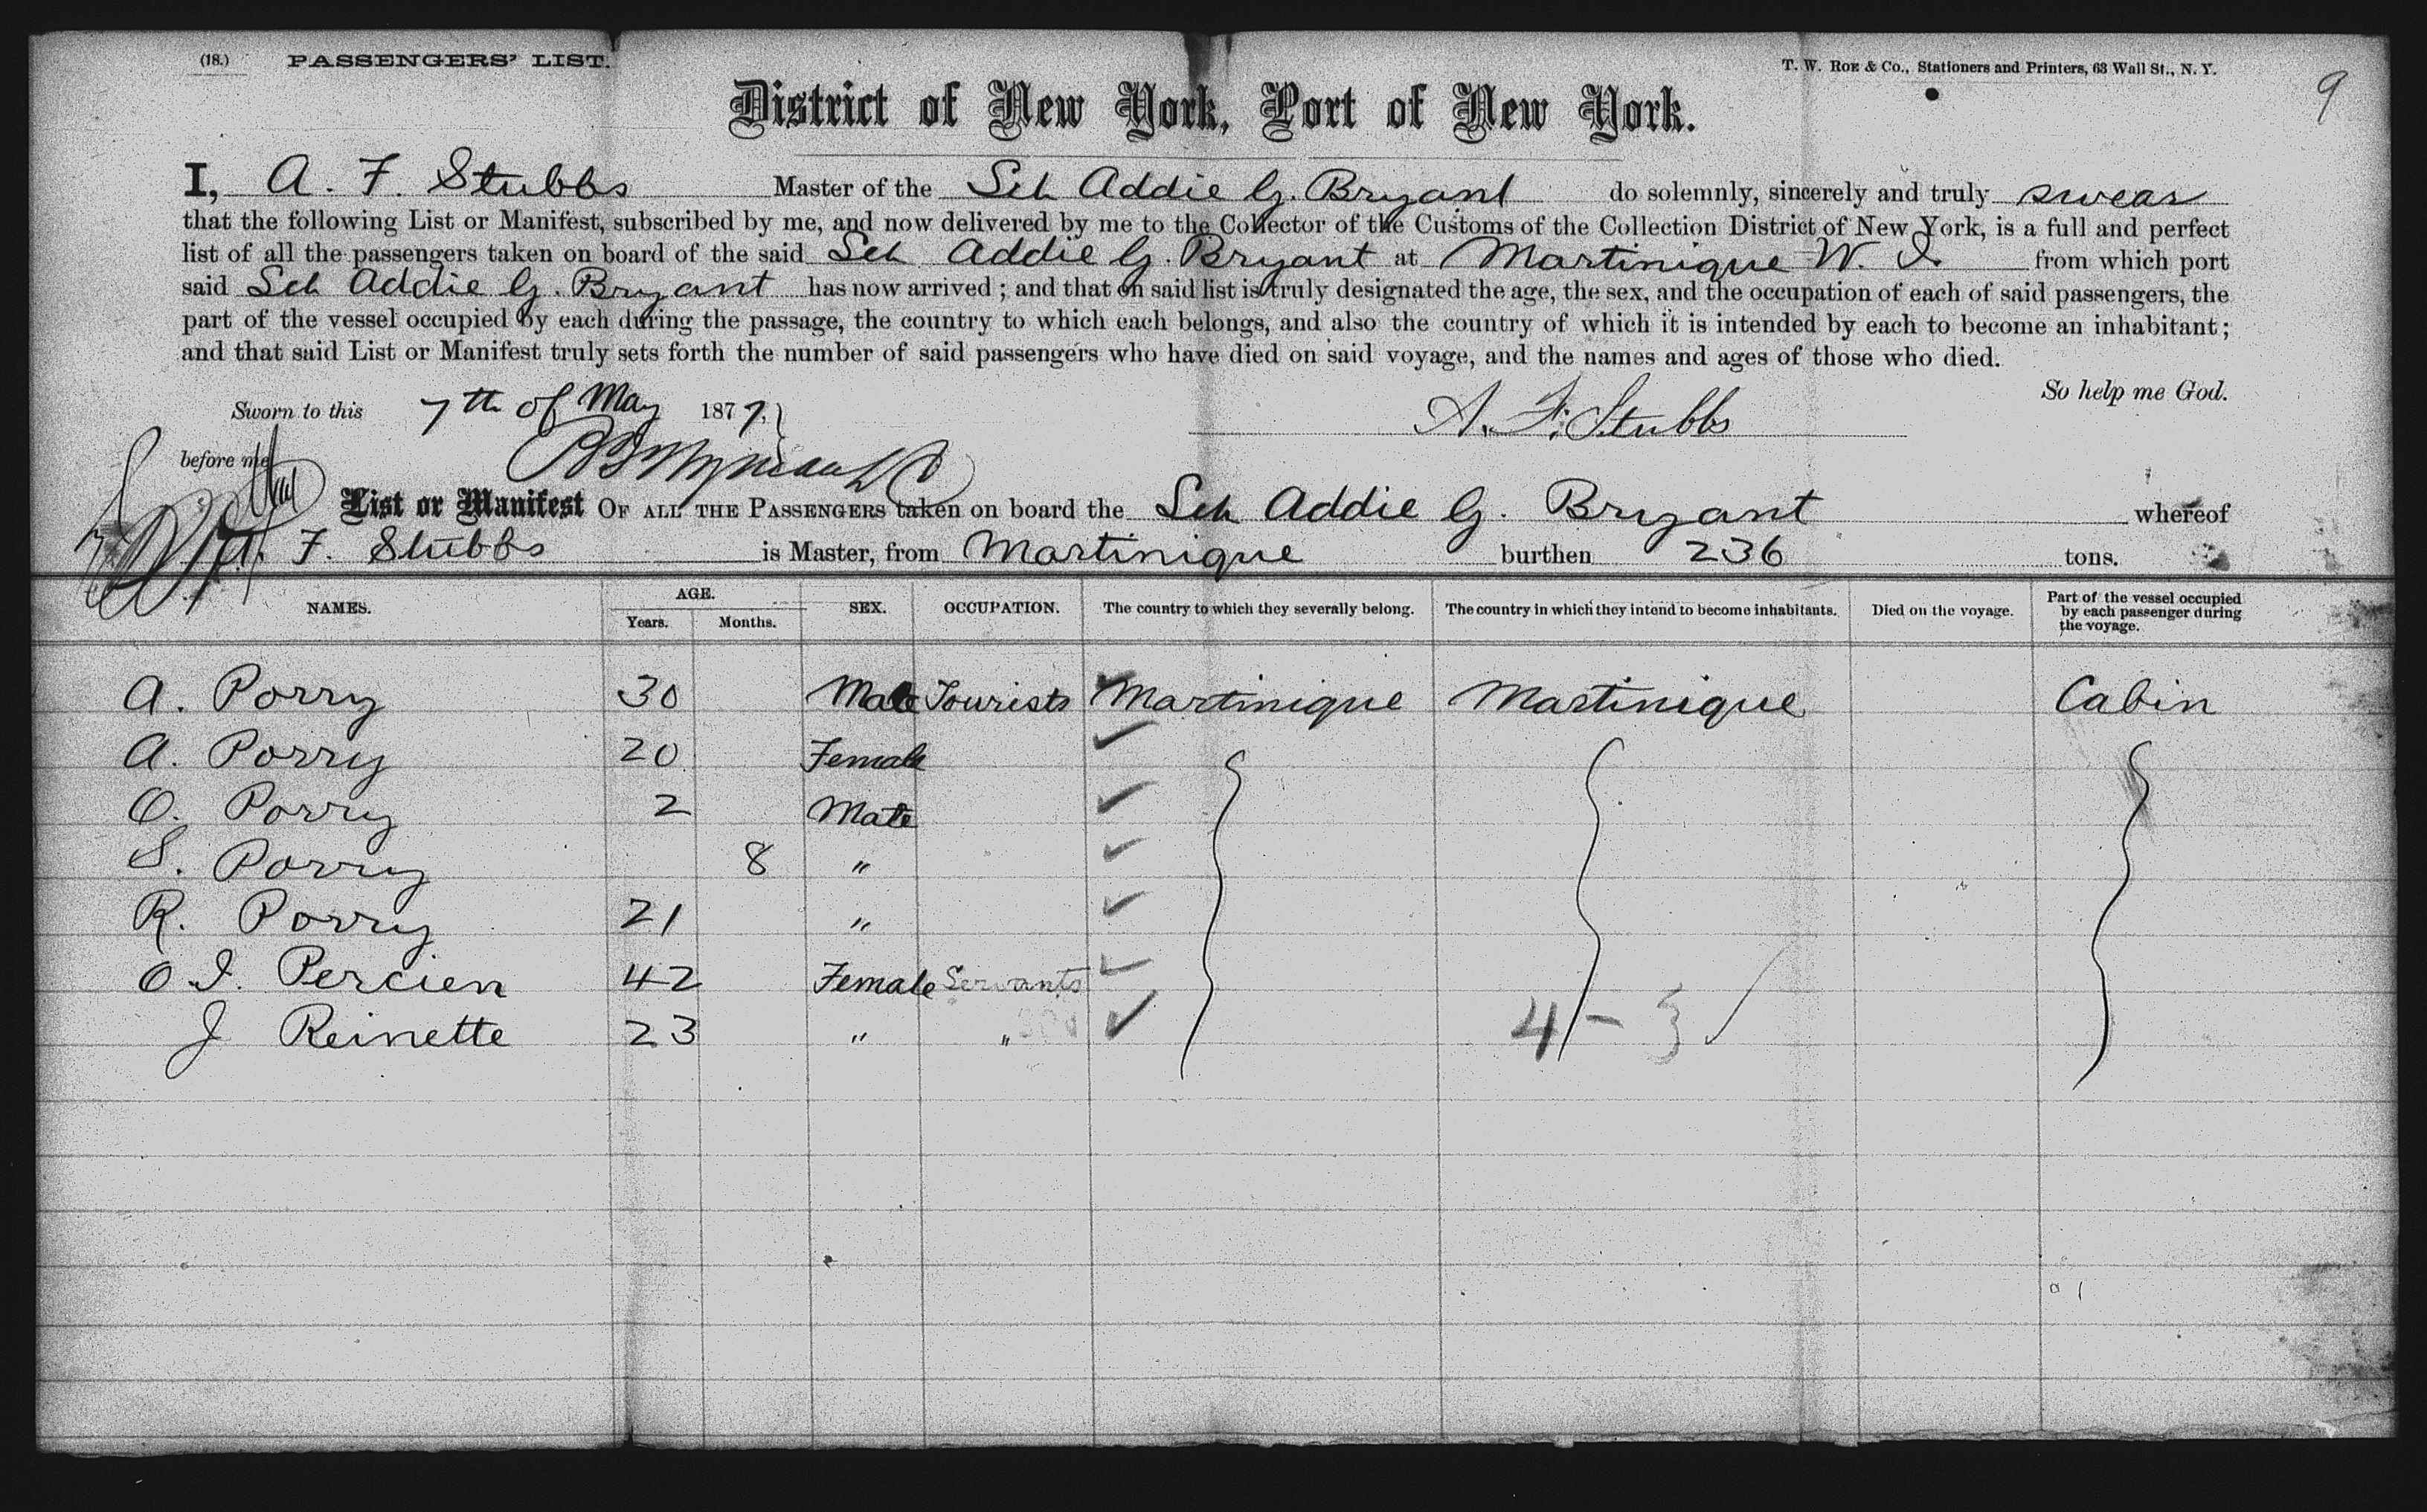 (18.) PASSENGERS' LIST.
T. W. ROE & Co., Stationers and Printers, 63 Wall St., N. Y.
9
District of New York, Port of New York.
I, A. F. Stubbs Master of the Sch Addie G. Bryant do solemnly, sincerely and truly swear
that the following List or Manifest, subscribed by me, and now delivered by me to the Collector of the Customs of the Collection District of New York, is a full and perfect
list of all the passengers taken on board of the said Sch Addie G. Bryant at Martinique W. I. from which port
said Sch Addie G. Bryant has now arrived; and that on said list is truly designated the age, the sex, and the occupation of each of said passengers, the
part of the vessel occupied by each during the passage, the country to which each belongs, and also the country of which it is intended by each to become an inhabitant;
and that said List or Manifest truly sets forth the number of said passengers who have died on said voyage, and the names and ages of those who died.
So help me God.
Sworn to this 7th of May 1877.
A. F. Stubbs
before me
List or Manifest OF ALL THE PASSENGERS taken on board the Sch Addie G. Bryant whereof
A. F. Stubbs is Master, from Martinique burthen 236 tons.
NAMES. AGE. Years. Months. SEX. OCCUPATION. The country to which they severally belong. The country in which they intend to become inhabitants. Died on the voyage. Part of the vessel occupied by each passenger during the voyage.
A. Porry 30 Male Tourists Martinique Martinique Cabin
A. Porry 20 Female
O. Porry 2 Male
S. Porry 8 "
R. Porry 21 "
O. I. Percien 42 Female Servants
J Reinette 23 " "
4 - 3